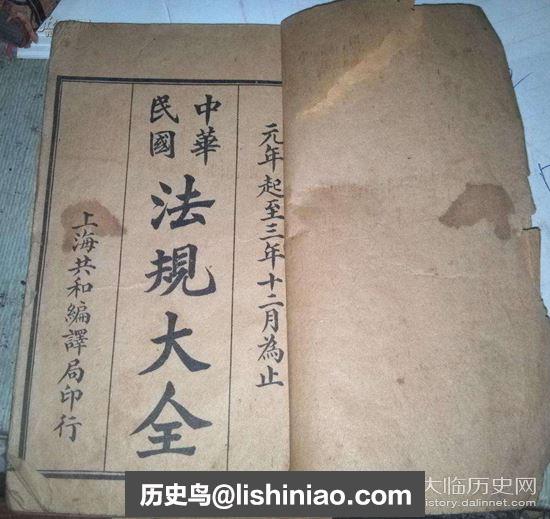 元年起至三年十二月為止
中華
民國
法規大全
上海共和編譯局印行
历史鸟@lishiniao.com
大临历史网
history.dalinnet.com